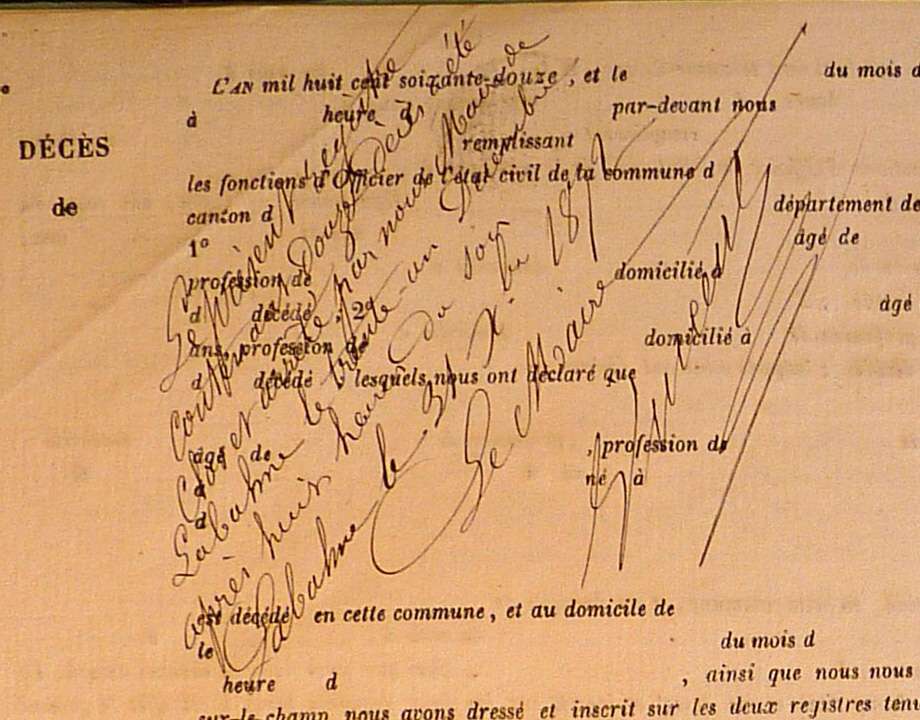 L'AN mil huit cent soixante-douze, et le du mois d
à heure d par-devant nous
DÉCÈS
remplissant
les fonctions d'Officier de l'état civil de la commune d
de
canton d département de
1° âgé de
profession de domicilié à
d décédé ; 2° âgé
ans, profession de domicilié à
d décédé ; lesquels nous ont déclaré que
âgé de , profession de
d né à
d
est décédé en cette commune, et au domicile de
le du mois d
heure d , ainsi que nous nous
sur-le-champ nous avons dressé et inscrit sur les deux registres tenu
Le présent registre
contenant Douze Décès a été
Clos et arrêté par nous Maire de
Labahne le trente-un Décembre
après huit heures du soir
Labahne le 31 X.bre 187
Le Maire